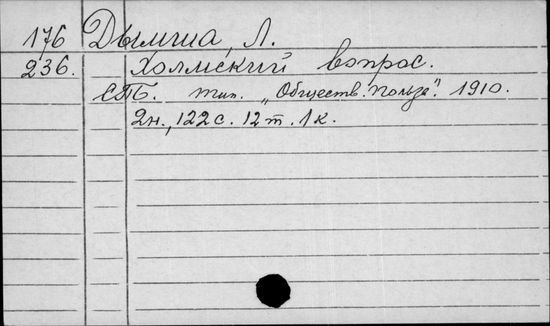 176 Дымша, Л.
236. Холмский вопрос.
СПБ. тип. „Обществ. Польза". 1910.
2н., 122 с. 12 т. 1 к.